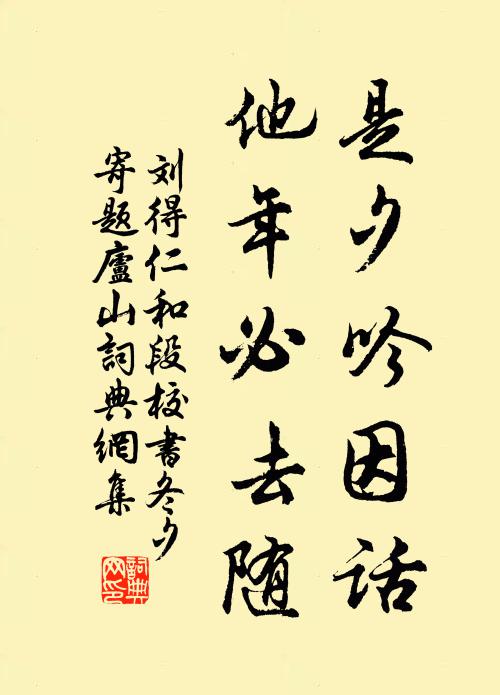 是夕吟因话
他年必去随
刘得仁和段校书冬夕
寄题廬山詞典網集
詞典
网印